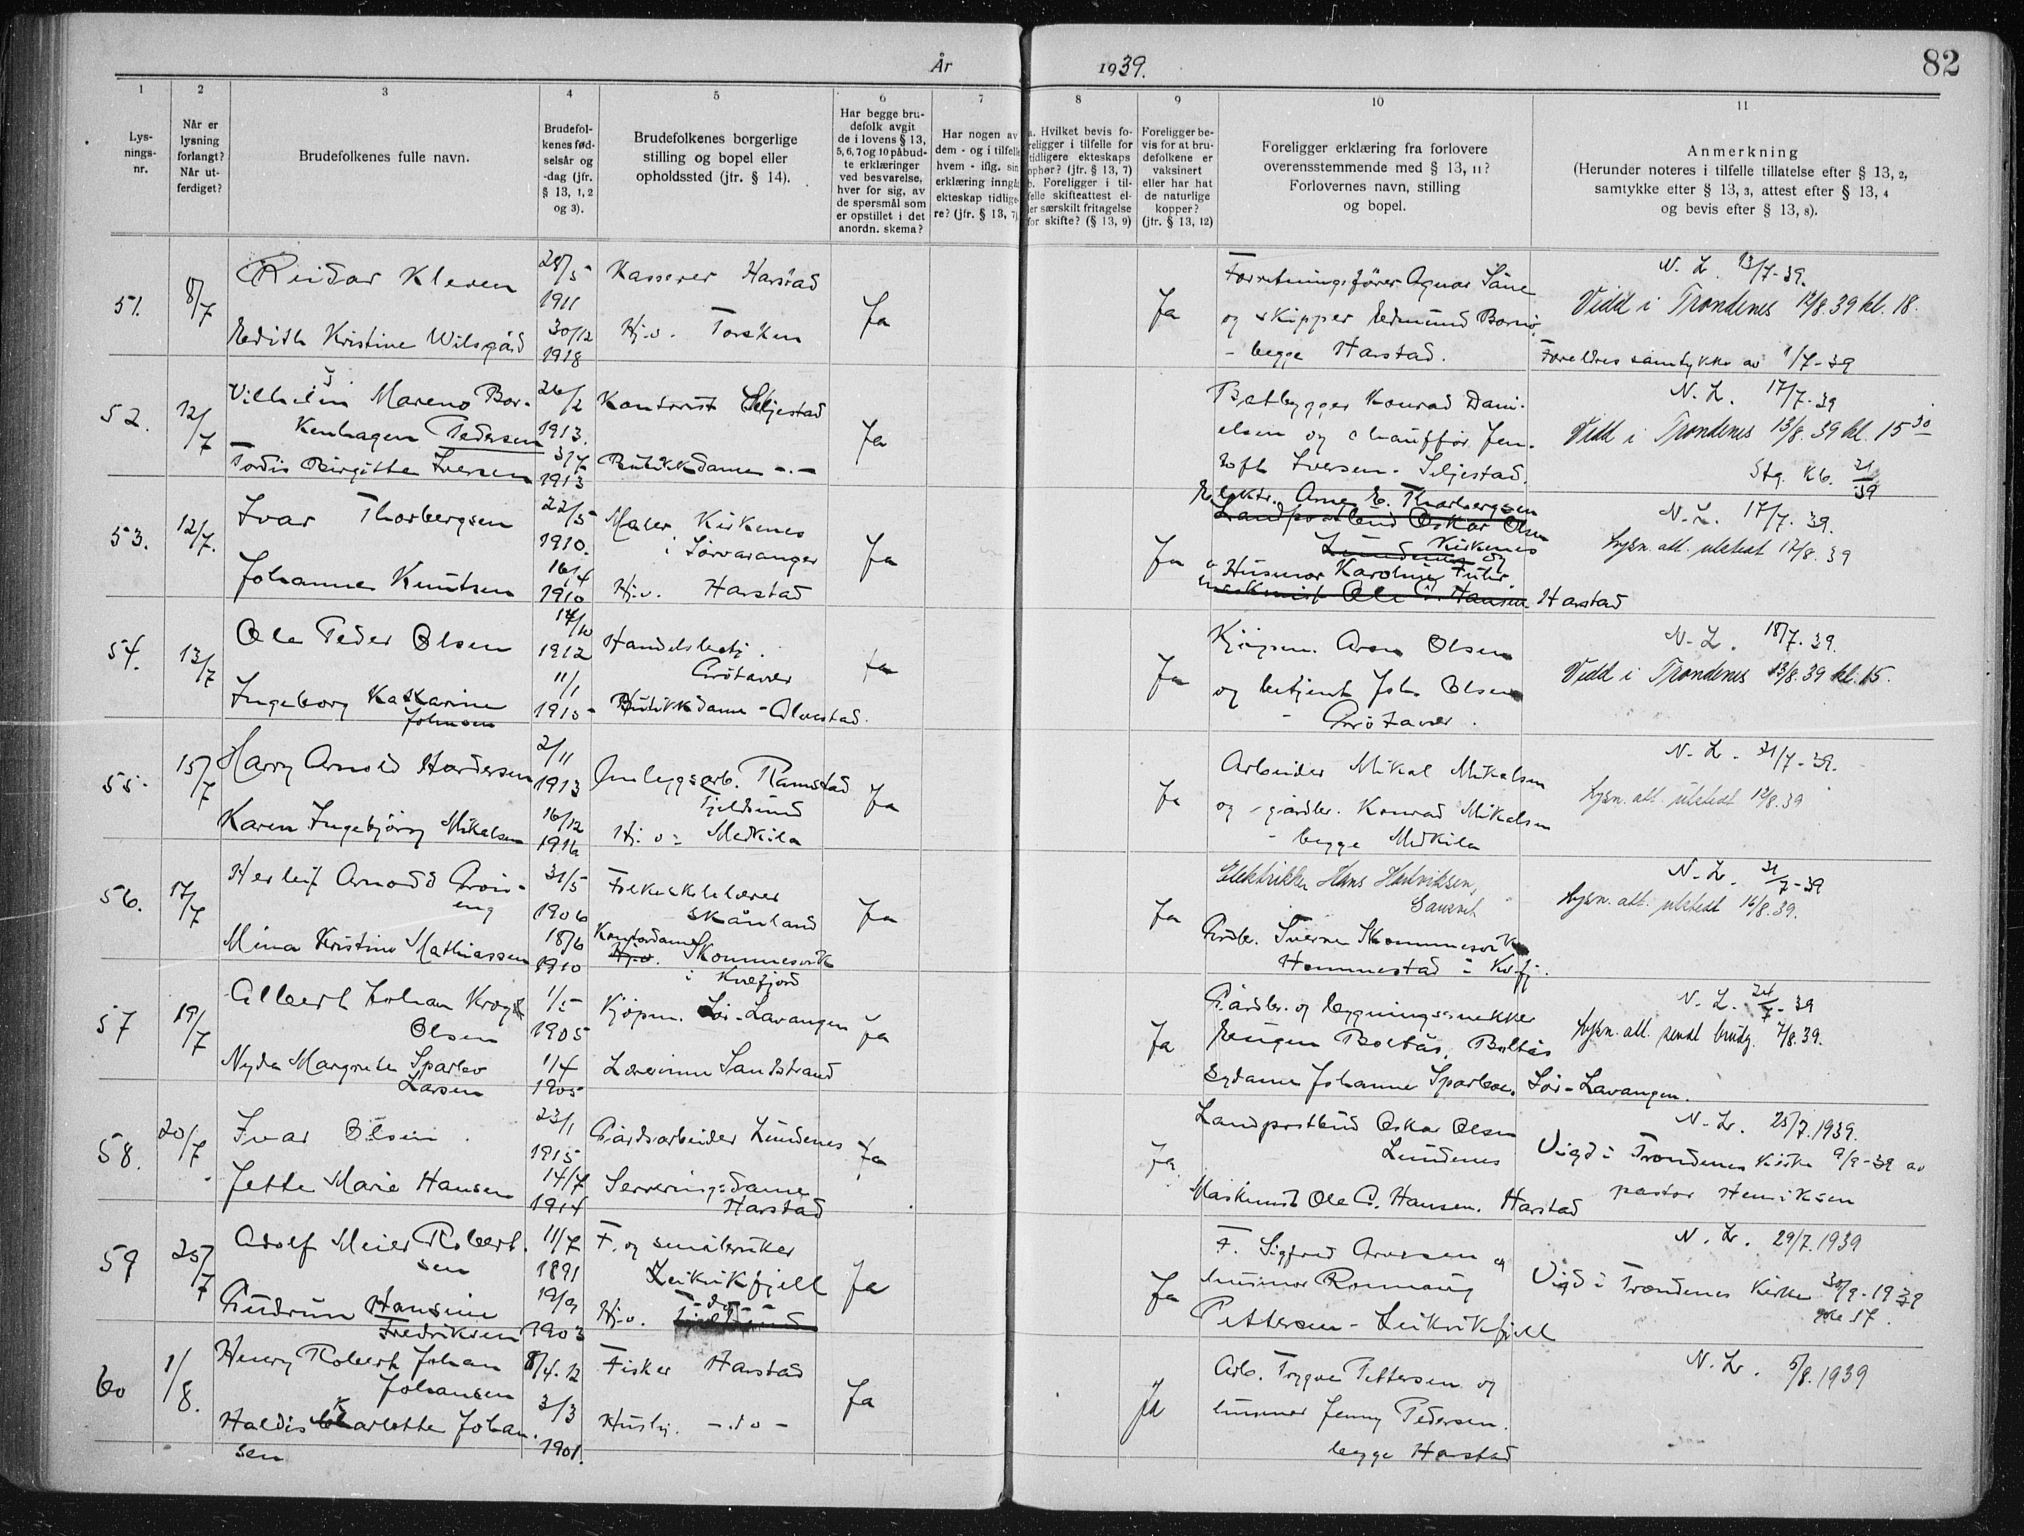 År 1939. 82
1 2 3 4 5 6 7 8 9 10 11
Lys-
nings-
nr.
Når er
lysning
forlangt?
Når ut-
ferdiget?
Brudefolkenes fulle navn.
Brudefol-
kenes fød-
selsår og
-dag (jfr.
§ 13, 1, 2
og 3).
Brudefolkenes borgerlige
stilling og bopel eller
opholdssted (jfr. § 14).
Har begge bru-
defolk avgit
de i lovens § 13,
5, 6, 7 og 10 påbud-
te erklæringer
ved besvarelse,
hver for sig, av
de spørsmål som
er opstillet i det
anordn. skema?
Har nogen av
dem - og i tilfelle
hvem - iflg. sin
erklæring inngå
ekteskap tidlige
re? (jfr. § 13, 7)
a. Hvilket bevis fo-
religger i tilfelle for
tidligere ekteskaps
ophør? (jfr. § 13, 7)
b. Foreligger i til-
felle skifteattest el-
er særskilt fritagelse
for skifte? (§ 13, 9)
Foreligger be-
vis for at bru-
defolkene er
vaksinert
eller har hat
de naturlige
kopper?
(jfr. § 13, 12)
Foreligger erklæring fra forlovere
overensstemmende med § 13, 11?
Forlovernes navn, stilling
og bopel.
Anmerkning
(Herunder noteres i tilfelle tillatelse efter § 13, 2,
samtykke efter § 13, 3, attest efter § 13, 4
og bevis efter § 13, 8).
51. 8/7
Reidar Kleven
28/5
1911
Kasserer Harstad
Edith Kristine Wilsgård
30/12
1918
Hj.v. Torsken
Ja
Ja
Forretningsfører Agnar Sane
og skipper Edmund
- begge Harstad.
N. L. 13/7-39.
Vidd i Trondenes 12/8.39 kl. 18.
Foreldres samtykke av 1/7-39
52. 12/7
J.
Vilhelm Mareno Bor-
kenhagen Pedersen
26/2
1913.
Kontorist Seljestad
Tordis Birgitte Iversen
31/7
1913
Butikkdame -.-
Ja
Båtbygger Konrad Dani-
elsen og chauffør Jen-
toft Iversen - Seljestad.
N. L. 17/7-39
Vidd i Trondenes 13/8.39 kl. 15 30
Stg. Kb. 21/39
53. 12/7.
Ivar Thorbergsen
22/5
1910.
Maler, Kirkenes
i Sørvaranger
Johanne Knutsen
16/4
1910
Hj.v. Harstad
Ja
Ja
Elektr. Arne E. Thorbergsen
Landpostbud Oskar Olsen
Kirkenes
Lundenes og
Husmor Karoline
maskinist Ole C. Hansen Harstad
N. L. 17/7.39.
Lysn. att. utstedt 12/8.39
54. 13/7
Ole Peder Olsen
14/10
1912
Handelsbetj.
Grøtavær
Ingeborg Katarine
Johnsen
11/1
1915
Butikkdame -
Ja
Ja
Kjøpm. Aron Olsen
og betjent Joh. Olsen
- Grøtavær.
N. L. 18/7.39.
Vidd i Trondenes 13/8.39 kl. 15.
55. 15/7
Harry Arnold Hordersen
2/11
1913
Anleggsarb. Ramstad
Tjeldsund
Karen Ingebjørg Mikalsen
16/12
1916
Hj. v. Medkila
Ja
Ja
Arbeider Mikal Mikalsen
og gårdbr. Konrad Mikalsen
- begge Medkila
N. L. 21/7-39.
Lysn. att. utstedt 12/8.39
56. 17/7
Herleif Arnold Grøn-
eng
31/5
1906
Folkeskolelærer
Skånland
Mina Kristine Mathiassen
18/6
1910
Kontordame
Hj.v. Skommesvik
i Kvefjord
Ja
Ja
Elektriker Hans Hartviksen,
Gårdbr. Sverre Skommesvik
Hemmestad i Kvfj.
N. L. 21/7-39
Lysn. att. utstedt 16/8.39.
57 19/7
Albert Johan Krogh
Olsen
1/5
1905
Kjøpm. Sør-Lavangen
Nyda Margrete Sparbo
Larsen
1/4
1905
Lærerinne Sandstrand
Ja
Ja
Gårdbr. og bygningssnekker
Eugen Boltås, Boltås
Sydame Johanne Sparboe, Sør-Lavangen.
N. L. 24/7-39
Lysn. att. sendt brudg. 7/8.39.
58. 20/7
Ivar Olsen.
23/1
1915
Gårdsarbeider Lundenes
Jette Marie Hansen
14/7
1914
Serveringsdame
Harstad
Ja
Ja
Landpostbud Oskar Olsen
Lundenes
Maskinist Ole C. Hansen. Harstad
N. L. 25/7.1939.
Vigd i Trondenes kirke 9/9-39 av
pastor Henriksen
59 25/7
Adolf Meier Robert-
sen
11/7
1891
F. og småbruker
Leikvikfjell
Gudrun Hansine
Fredriksen
19/9
1903
Hj.v. - do -
Ja
Ja
F. Sigfred Arnesen og
husmor Ronnaug
Pettersen - Leikvikfjell
N. L. 29/7.1939
Vigd i Trondenes kirke 30/9-1939
kl. 17.
60 1/8.
Henry Robert Johan
Johansen
8/4.12
Fisker Harstad
Haldis Karlotte Johan-
sen
3/3
1901.
Hushj. - do -
Ja
Ja
Arb. Trygve Pettersen og
husmor Jenny Pedersen.
begge Harstad
N. L. 5/8.1939